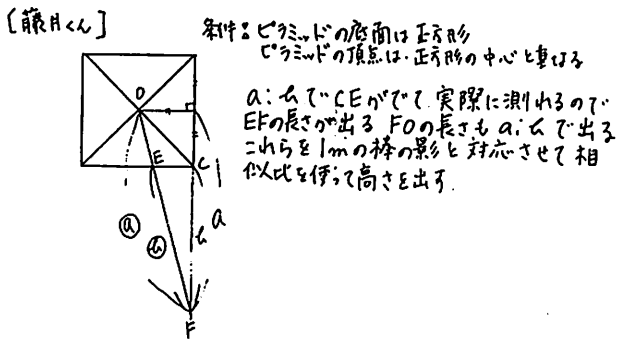 [藤月くん]
条件:ピラミッドの底面は正方形
ピラミッドの頂点は.正方形の中心と重なる
a:hでCEがでて.実際に測れるので
EFの長さが出る FOの長さもa:hで出る
これらを1mの棒の影と対応させて相
似比を使って高さを出す.
O
E
C
a
h
h
a
F